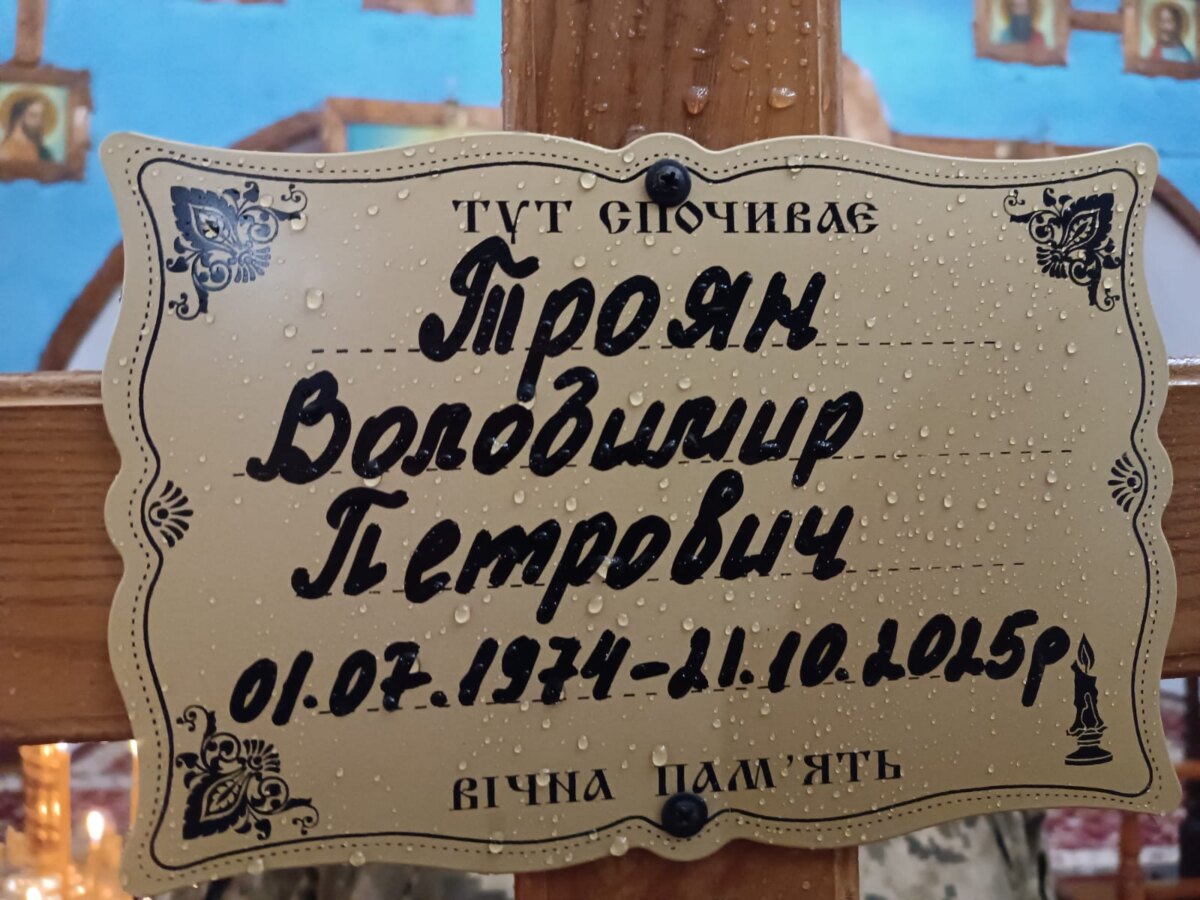 ТУТ СПОЧИВАЄ
Троян
Володимир
Петрович
01.07.1974-21.10.2025р
ВІЧНА ПАМ'ЯТЬ